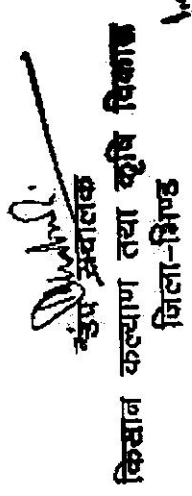 उप संचालक
किसान कल्याण तथा कृषि विकास
जिला-भिण्ड